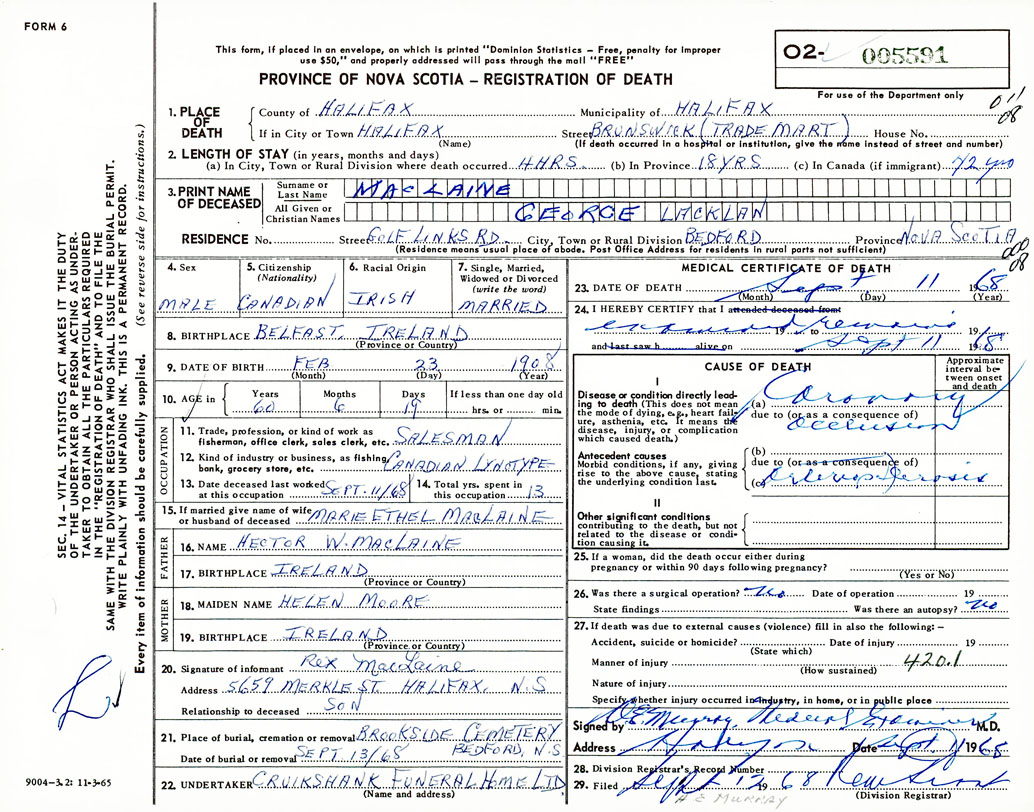 FORM 6
This form, if placed in an envelope, on which is printed "Dominion Statistics – Free, penalty for improper
use $50," and properly addressed will pass through the mail "FREE"
PROVINCE OF NOVA SCOTIA – REGISTRATION OF DEATH
O2- 005591
For use of the Department only
011
08
1. PLACE OF DEATH
County of HALIFAX Municipality of HALIFAX
If in City or Town HALIFAX Street BRUNSWICK (TRADE MART) House No.
(Name) (If death occurred in a hospital or institution, give the name instead of street and number)
2. LENGTH OF STAY (in years, months and days)
(a) In City, Town or Rural Division where death occurred 4 HRS. (b) In Province 18 YRS (c) In Canada (if immigrant)
3. PRINT NAME OF DECEASED
Surname or Last Name MACLAINE
All Given or Christian Names GEORGE LACKLAN
RESIDENCE No. Street GOLF LINKS RD. City, Town or Rural Division BEDFORD Province NOVA SCOTIA
(Residence means usual place of abode. Post Office Address for residents in rural parts not sufficient)
000
08
4. Sex
MALE
5. Citizenship
(Nationality)
CANADIAN
6. Racial Origin
IRISH
7. Single, Married,
Widowed or Divorced
(write the word)
MARRIED
8. BIRTHPLACE BELFAST, IRELAND
(Province or Country)
9. DATE OF BIRTH FEB 23 1908
(Month) (Day) (Year)
10. AGE in Years Months Days If less than one day old
60 6 19 hrs. or min.
OCCUPATION
11. Trade, profession, or kind of work as
fisherman, office clerk, sales clerk, etc. SALESMAN
12. Kind of industry or business, as fishing,
bank, grocery store, etc. CANADIAN LYNOTYPE
13. Date deceased last worked
at this occupation SEPT. 11/68
14. Total yrs. spent in
this occupation 13
15. If married give name of wife
or husband of deceased MARIE ETHEL MACLAINE
FATHER
16. NAME HECTOR W. MACLAINE
17. BIRTHPLACE IRELAND
(Province or Country)
MOTHER
18. MAIDEN NAME HELEN MOORE
19. BIRTHPLACE IRELAND
(Province or Country)
20. Signature of informant Rex MacLaine
Address 5659 MERKLE ST. HALIFAX, N.S
Relationship to deceased SON
21. Place of burial, cremation or removal BROOKSIDE CEMETERY
BEDFORD, N.S
Date of burial or removal SEPT. 13/68
22. UNDERTAKER CRUIKSHANK FUNERAL HOME LTD
(Name and address)
MEDICAL CERTIFICATE OF DEATH
23. DATE OF DEATH Sept 11 1968
(Month) (Day) (Year)
24. I HEREBY CERTIFY that I attended deceased from:
examined 19 to remains 19
and last saw h alive on Sept 11 1968
CAUSE OF DEATH
Approximate
interval be-
tween onset
and death
I
Disease or condition directly lead-
ing to death (This does not mean
the mode of dying, e.g., heart fail-
ure, asthenia, etc. It means the
disease, injury, or complication
which caused death.)
(a) Coronary
due to (or as a consequence of)
Occlusion
Antecedent causes
Morbid conditions, if any, giving
rise to the above cause, stating
the underlying condition last.
(b)
due to (or as a consequence of)
(c) Arteriosclerosis
II
Other significant conditions
contributing to the death, but not
related to the disease or condi-
tion causing it.
25. If a woman, did the death occur either during
pregnancy or within 90 days following pregnancy?
(Yes or No)
26. Was there a surgical operation? No Date of operation 19
State findings Was there an autopsy? No
27. If death was due to external causes (violence) fill in also the following: –
Accident, suicide or homicide? Date of injury 19
(State which)
Manner of injury 420.1
(How sustained)
Nature of injury
Specify whether injury occurred in industry, in home, or in public place
Signed by Murray Medical Examiner M.D.
Address Halifax Date Sept 11 1968
28. Division Registrar's Record Number
29. Filed Sept 12 1968
(Division Registrar)
H C MURRAY
SEC. 14 – VITAL STATISTICS ACT MAKES IT THE DUTY
OF THE UNDERTAKER OR PERSON ACTING AS UNDER-
TAKER TO OBTAIN ALL THE PARTICULARS REQUIRED
IN THE "REGISTRATION OF DEATH" AND TO FILE THE
SAME WITH THE DIVISION REGISTRAR WHO SHALL ISSUE THE BURIAL PERMIT.
WRITE PLAINLY WITH UNFADING INK. THIS IS A PERMANENT RECORD.
Every item of information should be carefully supplied. (See reverse side for instructions.)
9004-3.2: 11-3-65